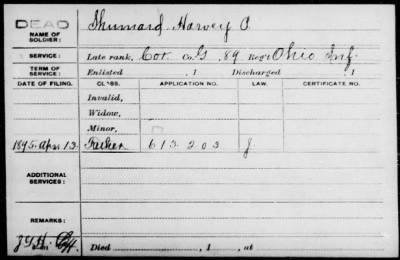 DEAD Shumard Harvey O.
NAME OF
SOLDIER:
SERVICE: Late rank, Cor. Co. G, 89 Reg't Ohio Inf.
TERM OF
SERVICE: Enlisted , 1 Discharged , 1
DATE OF FILING. CLASS. APPLICATION NO. LAW. CERTIFICATE NO.
Invalid,
Widow,
Minor,
1895. Apr. 13. Father 613.203 J
ADDITIONAL
SERVICES:
REMARKS:
Died , 1 , at